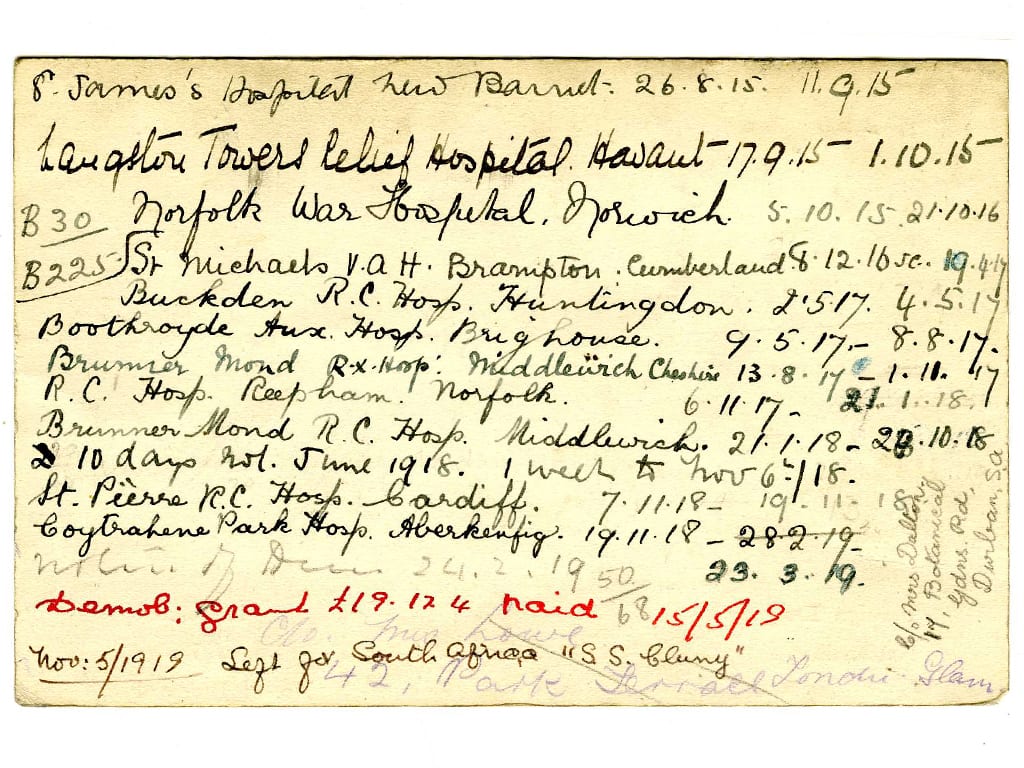 St. James's Hospital New Barnet. 26.8.15. 11.9.15
Langston Towers Relief Hospital. Havant 17.9.15 1.10.15
B 30 Norfolk War Hospital, Norwich. 5.10.15 21.10.16
B225 St Michaels V.A H. Brampton. Cumberland. 8.12.16 19.4.17
Buckden R.C. Hosp. Huntingdon. 2.5.17. 4.5.17
Boothroyde Aux. Hosp. Brighouse. 9.5.17.- 8.8.17.
Brunner Mond R.X. Hosp: Middlewich Cheshire 13.8.17 - 1.11.17
R.C. Hosp. Reepham. Norfolk. 6.11.17 - 21.1.18.
Brunner Mond R.C. Hosp. Middlewich. 21.1.18 - 23.10.18
10 days hol. June 1918. 1 week to Nov 6th/18.
St. Pierre R.C. Hosp. Cardiff. 7.11.18 - 19.11.18
Coytrahene Park Hosp. Aberkenfig. 19.11.18 - 28.2.19-
23.3.19.
24.2.19
50/68
Demob: grant £19.12 4 paid 15/5/19
c/o Mrs Lowe
Nov: 5/1919 Left for South Africa "S S. Cluny"
42, Park Terrace Tondu. Glam
c/o Mrs Dalton,
17, Botanical
Gdns Rd,
Durban, SA